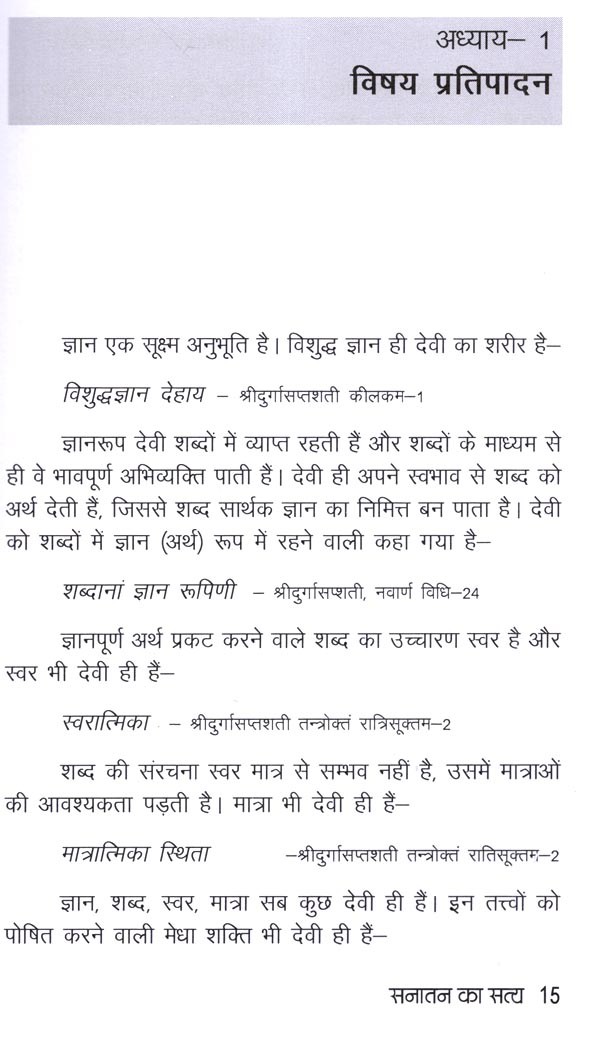 अध्याय– 1
विषय प्रतिपादन
ज्ञान एक सूक्ष्म अनुभूति है। विशुद्ध ज्ञान ही देवी का शरीर है–
विशुद्धज्ञान देहाय – श्रीदुर्गासप्तशती कीलकम–1
ज्ञानरूप देवी शब्दों में व्याप्त रहती हैं और शब्दों के माध्यम से
ही वे भावपूर्ण अभिव्यक्ति पाती हैं। देवी ही अपने स्वभाव से शब्द को
अर्थ देती हैं, जिससे शब्द सार्थक ज्ञान का निमित्त बन पाता है। देवी
को शब्दों में ज्ञान (अर्थ) रूप में रहने वाली कहा गया है–
शब्दानां ज्ञान रूपिणी – श्रीदुर्गासप्शती, नवार्ण विधि–24
ज्ञानपूर्ण अर्थ प्रकट करने वाले शब्द का उच्चारण स्वर है और
स्वर भी देवी ही हैं–
स्वरात्मिका – श्रीदुर्गासप्तशती तन्त्रोक्तं रात्रिसूक्तम–2
शब्द की संरचना स्वर मात्र से सम्भव नहीं है, उसमें मात्राओं
की आवश्यकता पड़ती है। मात्रा भी देवी ही हैं–
मात्रात्मिका स्थिता –श्रीदुर्गासप्तशती तन्त्रोक्तं रातिसूक्तम–2
ज्ञान, शब्द, स्वर, मात्रा सब कुछ देवी ही हैं। इन तत्त्वों को
पोषित करने वाली मेधा शक्ति भी देवी ही हैं–
सनातन का सत्य 15